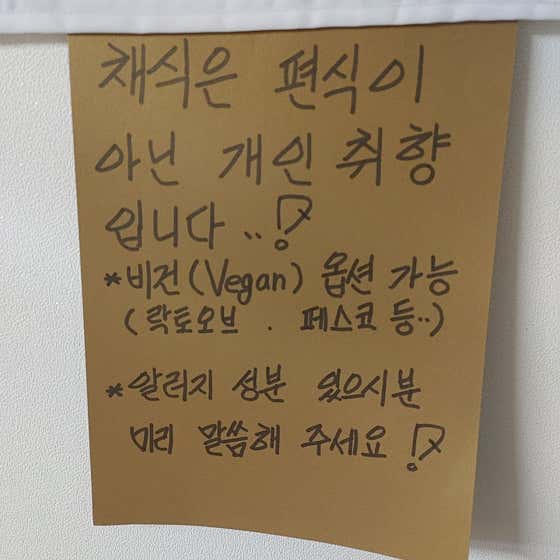 채식은 편식이
아닌 개인 취향
입니다..!?
*비건(Vegan) 옵션 가능
(락토오브. 페스코 등..)
*알러지 성분 있으시분
미리 말씀해 주세요!?